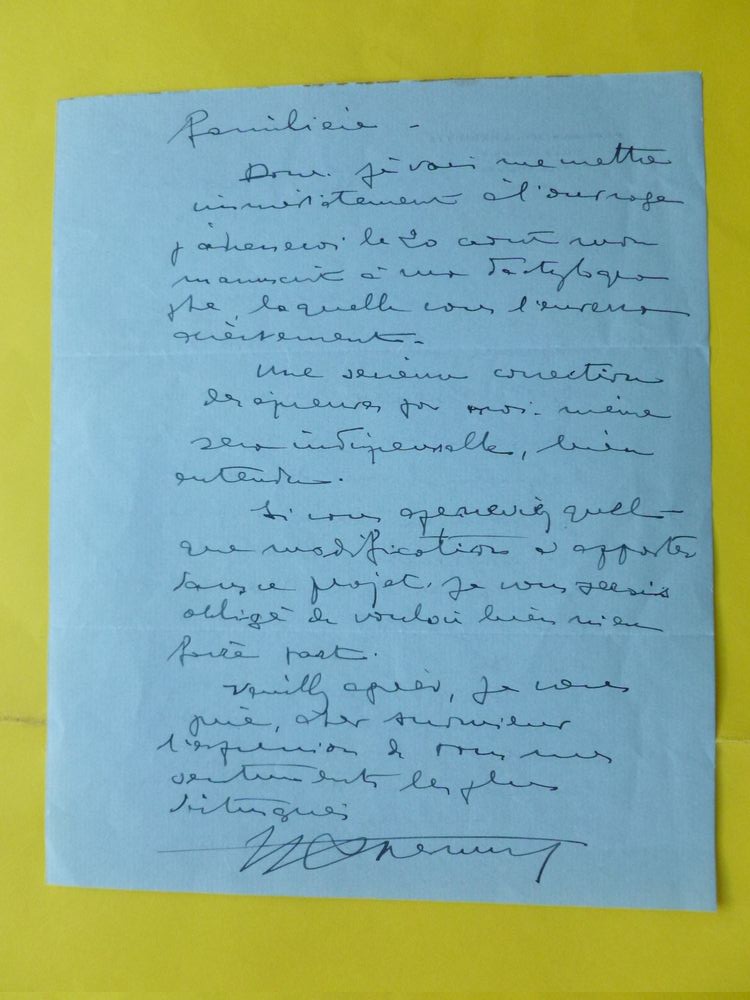 familière -
Donc je vais me mettre
immédiatement à l'ouvrage
j'adresserai le 20 août mon
manuscrit à ma dactylogra
phe, laquelle vous l'enverra
directement.
Une sérieuse correction
des épreuves par moi-même
sera indispensable, bien
entendu.
Si vous quel-
que modifications à apporter
dans ce projet, je vous serais
obligé de vouloir bien m'en
faire part.
Veuillez agréer, je vous
prie, cher monsieur
l'expression de tous mes
sentiments les plus
distingués